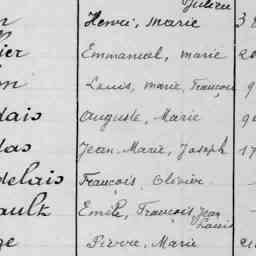 Julien
n Henri, Marie 3
ier Emmanuel, Marie 20
on Louis, Marie, François 9
dais Auguste, Marie 9
das Jean-Marie, Joseph 17
delais François Olivier
ault Emile, François, Jean
Louis
ge Pierre, Marie 21